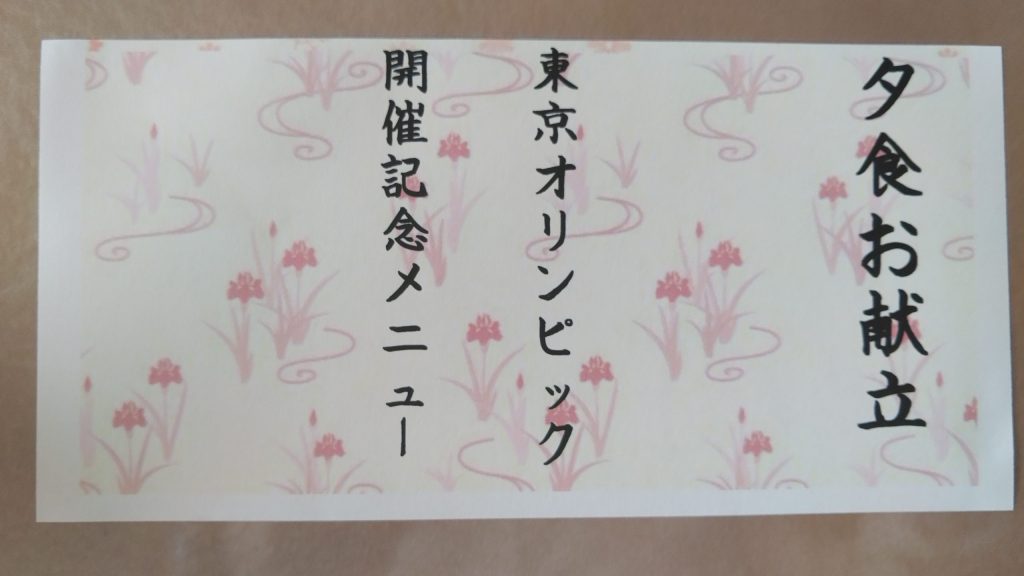 夕食お献立
東京オリンピック
開催記念メニュー